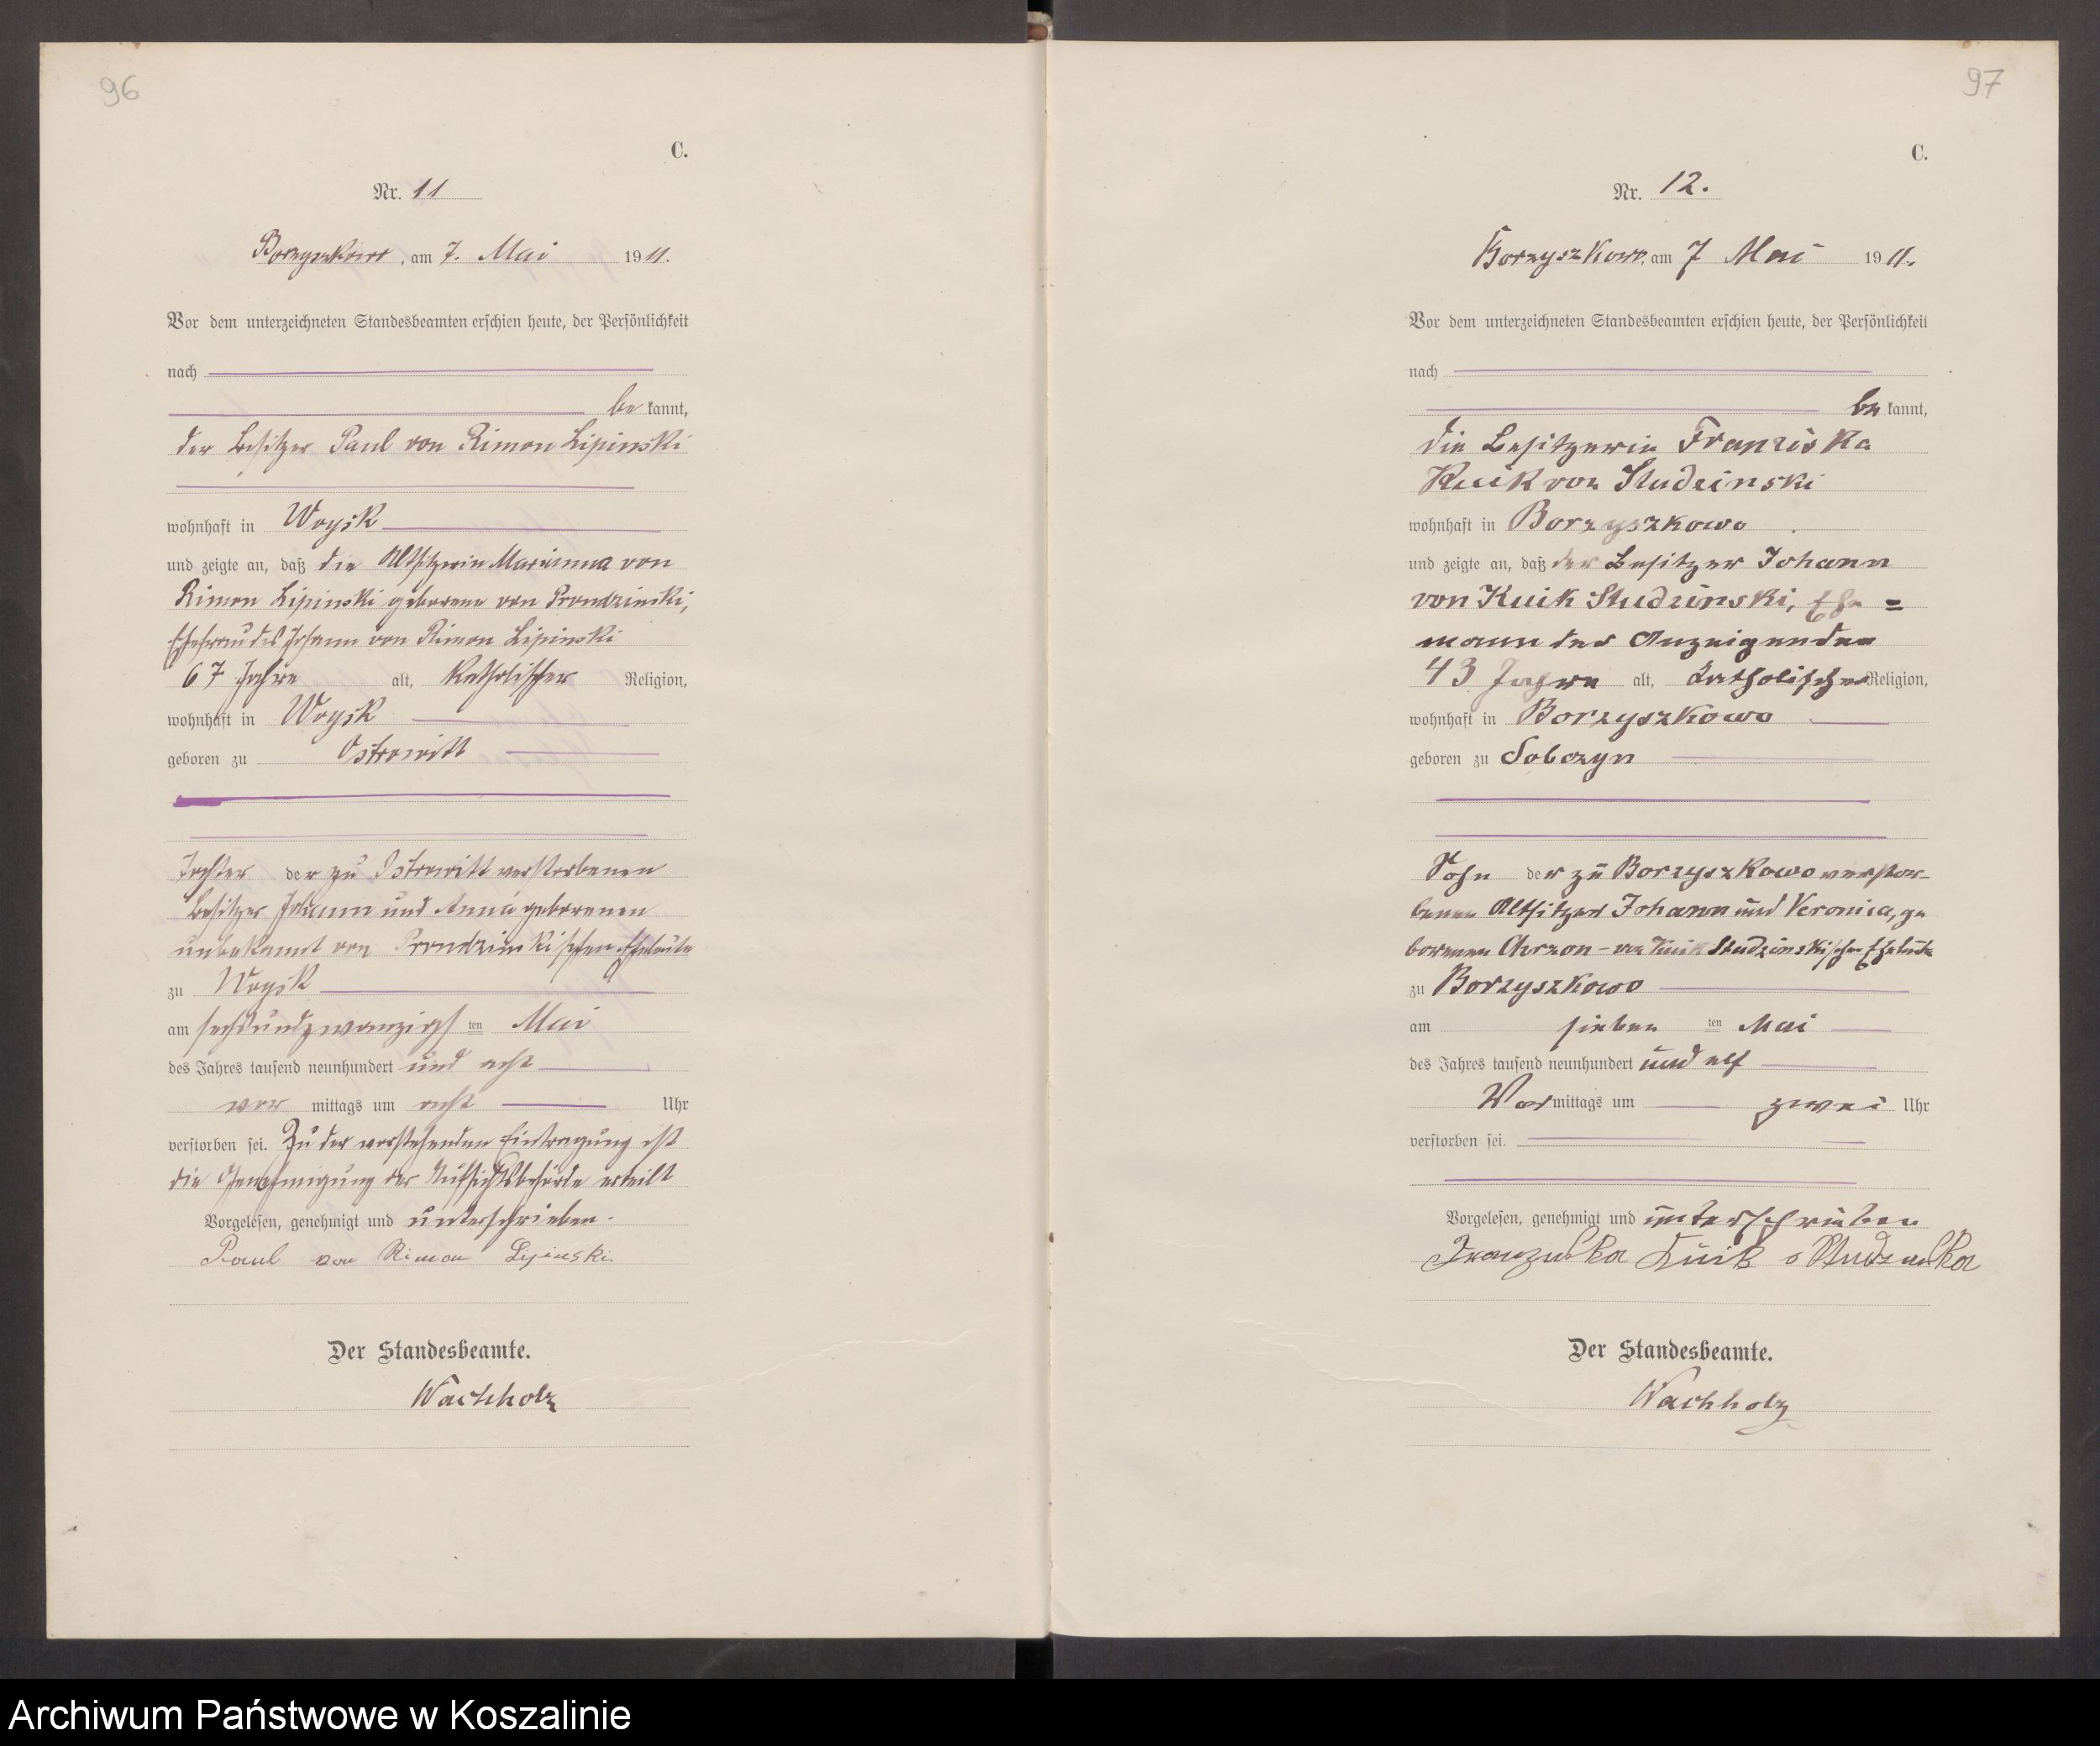 96
C.
Nr. 11
Borzyszkowo, am 7. Mai 1911.
Vor dem unterzeichneten Standesbeamten erschien heute, der Persönlichkeit
nach
be kannt,
der Besitzer Paul von Rimon Lipinski
wohnhaft in Woysk
und zeigte an, daß die Altsitzerin Marianna von
Rimon Lipinski geborene von Prondzinski,
Ehefrau des Johann von Rimon Lipinski
67 Jahre alt, katholischer Religion,
wohnhaft in Woysk
geboren zu Ostrowitt
Tochter der zu Ostrowitt verstorbenen
Besitzer Johann und Anna geborenen
unbekannt von Prondzinskischen Eheleute
zu Woysk
am sechsundzwanzigsten Mai
des Jahres tausend neunhundert und acht
vor mittags um acht Uhr
verstorben sei. Zu der vorstehenden Eintragung ist
die Genehmigung der Aufsichtsbehörde erteilt
Vorgelesen, genehmigt und unterschrieben.
Paul von Rimon Lipinski
Der Standesbeamte.
Wachholz
97
C.
Nr. 12.
Borzyszkowo, am 7 Mai 1911.
Vor dem unterzeichneten Standesbeamten erschien heute, der Persönlichkeit
nach
be kannt,
die Besitzerin Franziska
Kuik von Studzinski
wohnhaft in Borzyszkowo
und zeigte an, daß der Besitzer Johann
von Kuik Studzinski, Ehe=
mann der Anzeigenden
43 Jahre alt, katholischer Religion,
wohnhaft in Borzyszkowo
geboren zu Sobczyn
Sohn der zu Borzyszkowo verstor-
benen Altsitzer Johann und Veronica, ge
borenen von Kuik Studzinskischen Eheleute
zu Borzyszkowo
am sieben ten Mai
des Jahres tausend neunhundert und elf
Vor mittags um zwei Uhr
verstorben sei.
Vorgelesen, genehmigt und unterschrieben
Franziska Kuik v Studzinska
Der Standesbeamte.
Wachholz
Archiwum Państwowe w Koszalinie